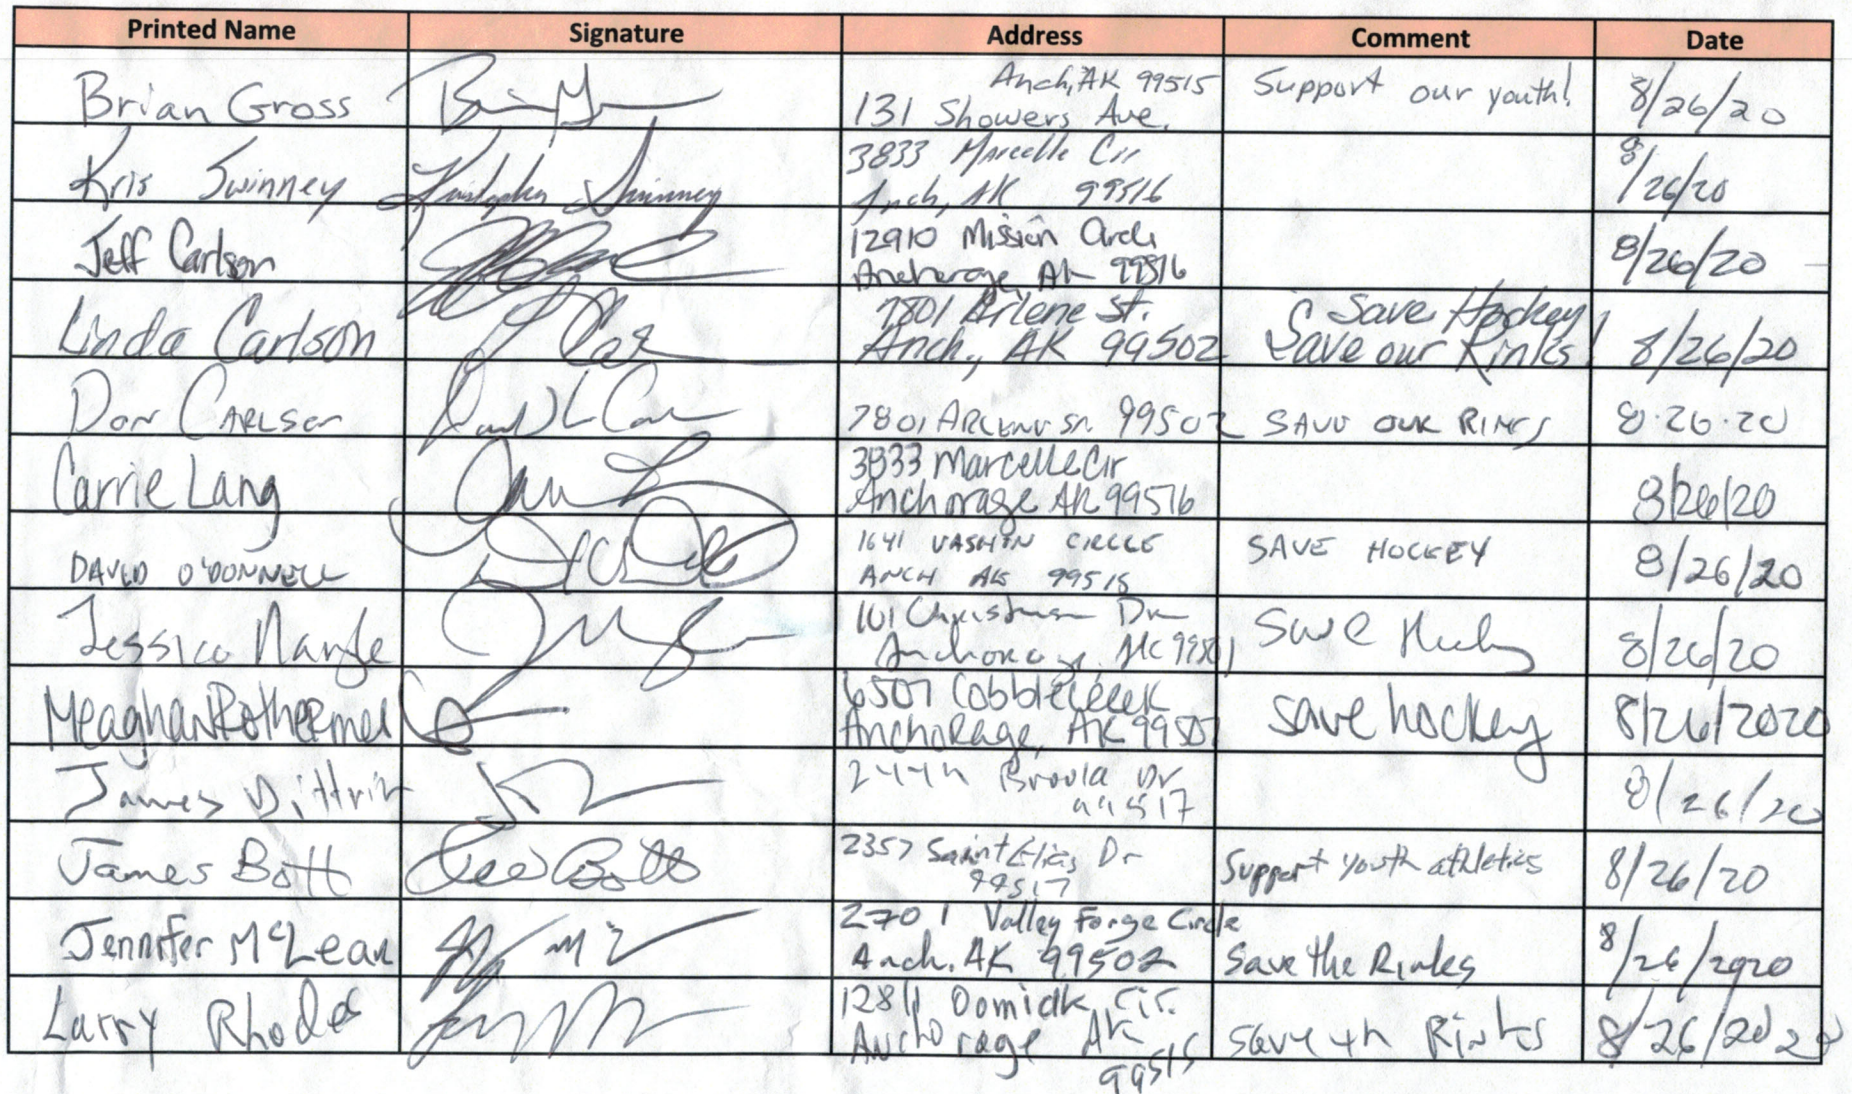 Printed Name Signature Address Comment Date
Brian Gross
Anch, AK 99515
131 Showers Ave.
Support our youth!
8/26/20
Kris Swinney
Kristopher Swinney
3833 Marcelle Cir
Anch, AK 99516
8/26/20
Jeff Carlson
12910 Mission Circle
Anchorage, AK 99516
8/26/20
Linda Carlson
7801 Arlene St.
Anch., AK 99502
Save Hockey!
Save our Rinks!
8/26/20
Don Carlson
7801 Arlene St. 99502
Save our Rinks
8.26.20
Carrie Lang
3833 Marcelle Cir
Anchorage AK 99516
8/26/20
DAVID O'DONNELL
1641
CIRCLE
ANCH AK 99515
SAVE HOCKEY
8/26/20
Jessica
101 Christensen Dr
Anchorage, AK 99501
Save
8/26/20
Meaghan Rothermel
6507 Cobblecreek
Anchorage, AK 99507
save hockey
8/26/2020
James
Dr
99517
8/26/20
James Bott
2357 Saint Elias Dr
99517
Support youth athletics
8/26/20
Jennifer McLean
2701 Valley Forge Circle
Anch. AK 99502
Save the Rinks
8/26/2020
Larry Rhodes
Cir.
Anchorage AK
99515
Save th Rinks
8/26/2020